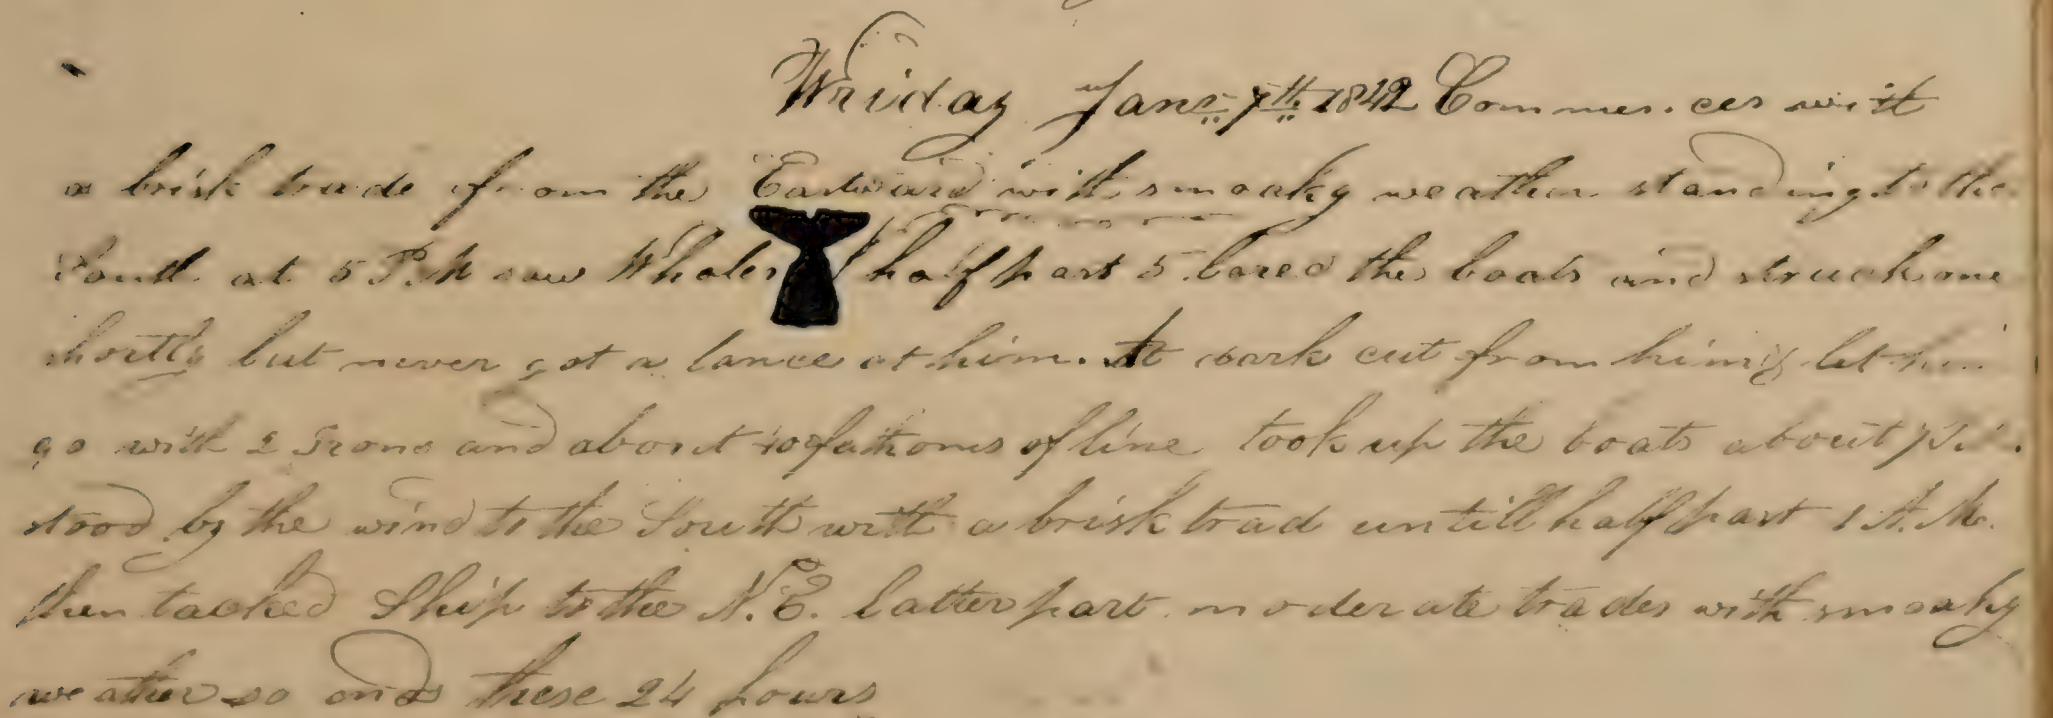 Friday Jany 7th 1842 Commences with
a brisk trade from the Eastward with smoaky weather standing to the
South at 5 P.M saw Whales half past 5 lored the boats and struck one
shortly but never got a lance at him. At dark cut from him & let him
go with 2 Irons and about 40 fathoms of line took up the boats about 7
stood by the wind to the South with a brisk trad untill half past 1 A.M.
then tacked Ship to the N.E. latter part moderate trades with smoaky
weather so ends these 24 hours